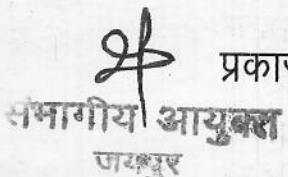 प्रका
संभागीय आयुक्त
जयपुर